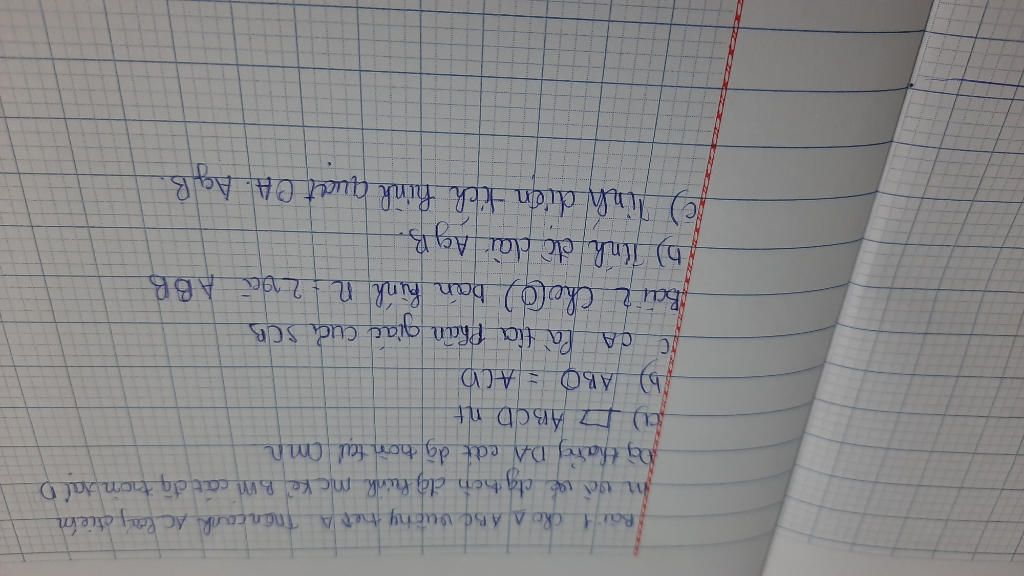 Bài 1 cho Δ ABC vuông tại A Trên cạnh AC lấy điểm
M vẽ đg tròn đg kính MC kẻ BM cắt đg tròn tại D
Đg thẳng DA cắt đg tròn tại CMR
a) ▱ ABCD nt
b) ABD = ACD
c CA là tia phân giác của SCB
Bài 2 Cho (O) bán kính R = 2 và
b) Tính độ dài AqB.
c) Tính diện tích hình quạt OA. AqB.